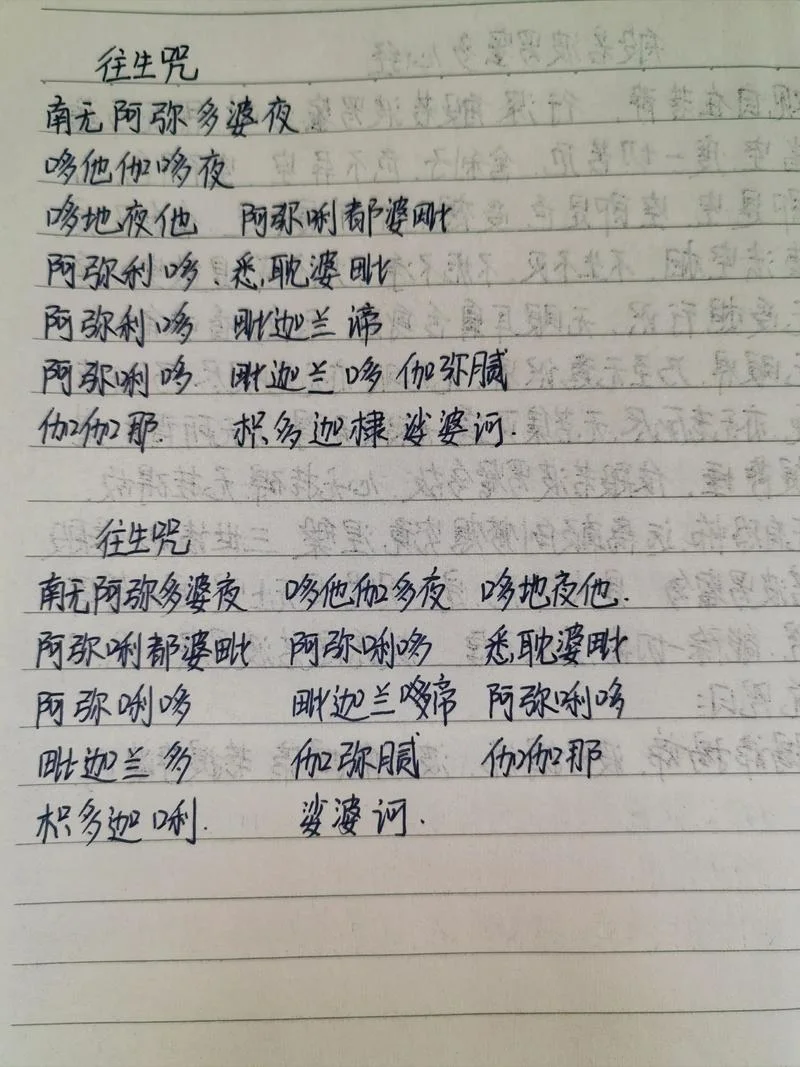 往生咒
南无阿弥多婆夜
哆他伽哆夜
哆地夜他 阿弥唎都婆毗
阿弥利哆、悉耽婆毗
阿弥利哆 毗迦兰谛
阿弥唎哆 毗迦兰哆 伽弥腻
伽伽那. 枳多迦棣 娑婆诃.
往生咒
南无阿弥多婆夜 哆他伽多夜 哆地夜他.
阿弥唎都婆毗 阿弥唎哆 悉耽婆毗
阿弥唎哆 毗迦兰哆帝 阿弥唎哆
毗迦兰多 伽弥腻 伽伽那
枳多迦唎. 娑婆诃.